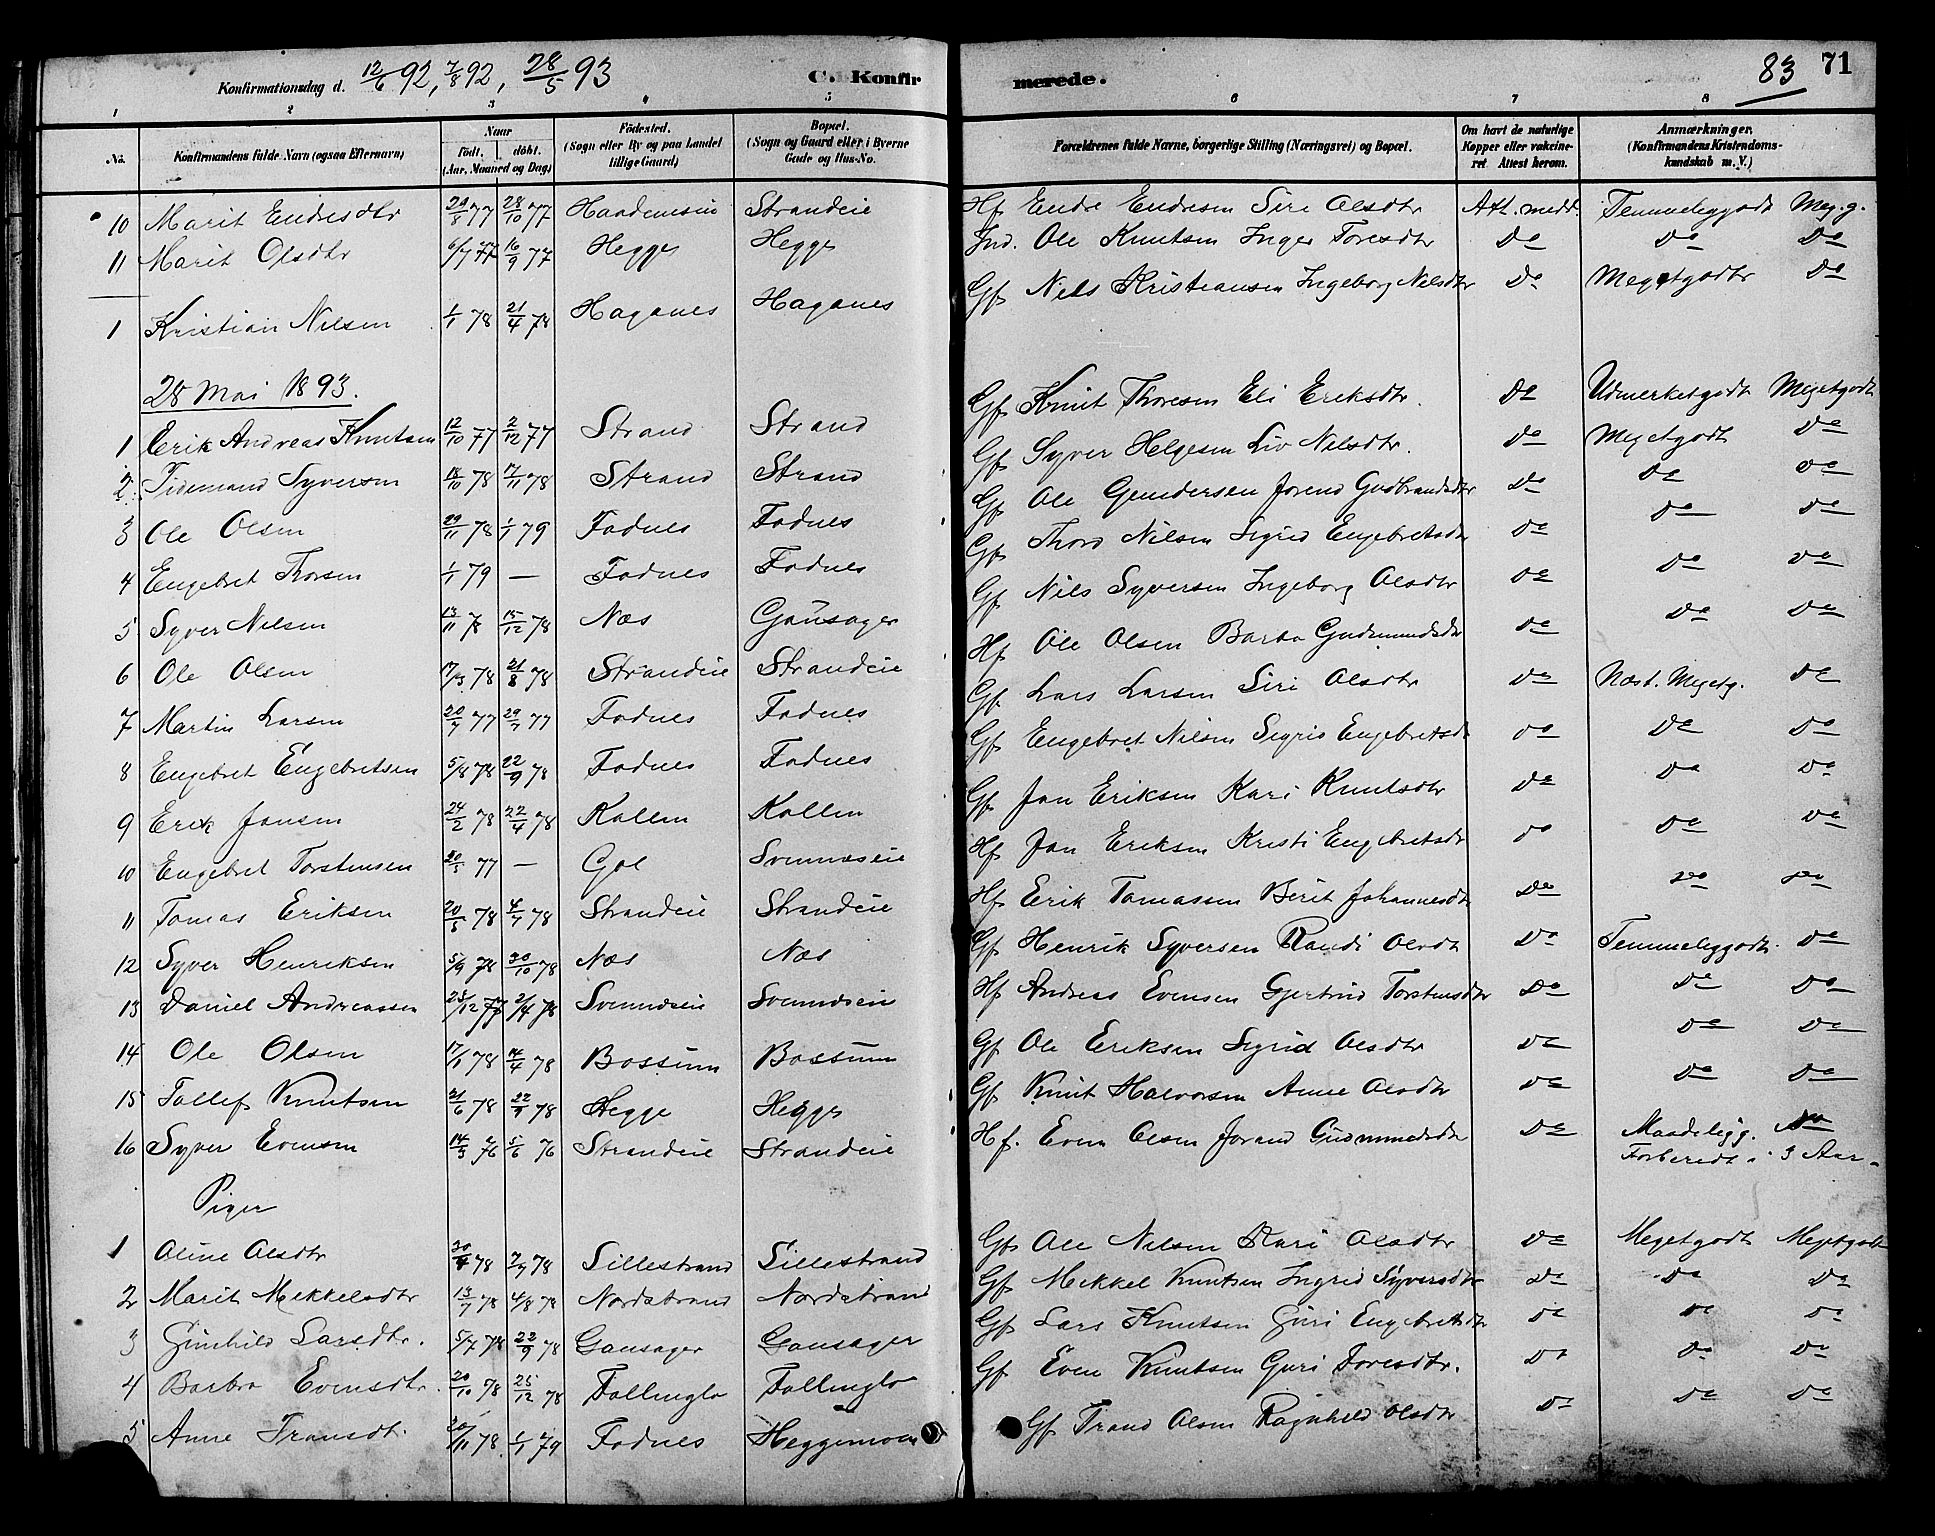 Konfirmationsdag d. 12/6 92, 7/8 92, 28/5 93 C. Konfirmerede. 83 71
1 2 3 4 5 6 7 8
No. Konfirmandens fulde Navn (ogsaa Efternavn) Naar födt. döbt. (Aar, Maaned og Dag) Födested. (Sogn eller By og paa Landet tillige Gaard) Bopæl. (Sogn og Gaard eller i Byerne Gade og Hus-No. Forældrenes fulde Navne, borgerlige Stilling (Næringsvei) og Bopæl. Om havt de naturlige Kopper eller vakcineret Attest herom. Anmærkninger. (Konfirmandens Kristendomskundskab m. V.)
10 Marit Endresdtr 29/8 77 28/10 77 Strandeie Hf Endre Endresen Siri Olsdtr Att. medd. Temmeliggodt Meg. g.
11 Marit Olsdtr 6/7 77 16/9 77 Hegge Hegge Ind. Ole Knutsen Inger Toresdtr Do Do Do
1 Kristian Nilsen 1/1 78 21/4 78 Haganes Haganes Gf Nils Kristiansen Ingeborg Nilsdtr Do Megetgodtr Do
28 Mai 1893.
1 Erik Andreas Knutsen 12/10 77 2/12 77 Strand Strand Gf Knut Thoresen Eli Eriksdtr. Do Udmerketgodt Megetgodt
2 Tidemand Syversen 18/10 78 17/11 78 Strand Strand Gf Syver Helgesen Liv Nilsdtr. Do Megetgodt Do
3 Ole Olsen 29/11 78 1/1 79 Fodnes Fodnes Gf Ole Gundersen Jorend Gudbrandsdtr Do Do Do
4 Engebret Thorsen 1/1 79 — Fodnes Fodnes Gf Thord Nilsen Sigrid Engebretsdtr Do Do Do
5 Syver Nilsen 13/11 78 15/12 78 Næs Gausager Gf Nils Syversen Ingeborg Olsdtr Do Do Do
6 Ole Olsen 17/3 78 21/8 78 Strandeie Strandeie Hf Ole Olsen Barbo Gudmundsdtr Do Do Do
7 Martin Larsen 20/7 77 29/7 77 Fodnes Fodnes Gf Lars Larsen Siri Olsdtr Do Næst. Megetg. Do
8 Engebret Engebretsen 5/8 78 22/9 78 Fodnes Fodnes Gf Engebret Nilsen Sigrid Engebretsdtr Do Do Do
9 Erik Jonsen 24/2 78 22/4 78 Kollen Kollen Gf Jon Eriksen Kari Knutsdtr Do Do Do
10 Engebret Torstensen 20/5 77 — Gol Svennæseie Hf Jon Eriksen Kristi Engebretsdtr Do Do Do
11 Tomas Eriksen 20/5 78 4/7 78 Strandeie Strandeie Hf Erik Tomassen Berit Johannesdtr Do Do Do
12 Syver Henriksen 5/9 78 20/10 78 Næs Næs Gf Henrik Syversen Randi Olsdtr Do Temmeliggodt Do
13 Daniel Andreassen 23/12 77 2/4 78 Svennæseie Svennæseie Hf Andreas Evensen Gjertrud Torstensdtr Do Do Do
14 Ole Olsen 17/1 78 14/4 78 Bossum Bossum Gf Ole Eriksen Sigrid Olsdtr Do Do Do
15 Tollef Knutsen 21/6 78 22/9 78 Hegge Hegge Gf Knut Halvorsen Anne Olsdtr Do Do Do
16 Syver Evensen 14/5 76 5/6 76 Strandeie Strandeie Hf. Even Olsen Jorand Gudmundsdtr Do Maadeligg. Do
Forberedt i 3 Aar.
Piger
1 Oline Olsdtr 30/4 78 7/7 78 Lillestrand Lillestrand Gf Ole Nilsen Kari Olsdtr Do Megetgodt Megetgodt
2 Marit Mekkelsdtr 13/7 78 4/8 78 Nordstrand Nordstrand Gf Mekkel Knutsen Ingrid Syversdtr Do Do Do
3 Gunhild Larsdtr. 5/7 78 22/9 78 Gausager Gausager Gf Lars Knutsen Guri Engebretsdtr Do Do Do
4 Barbro Evensdtr. 20/10 78 25/12 78 Follinglo Follinglo Gf Even Knutsen Guri Toresdtr. Do Do Do
5 Anne Transdt. 20/11 78. 1/1 79 Fodnes Heggemoen Gf Trand Olsen Ragnhild Olsdtr Do Do Do